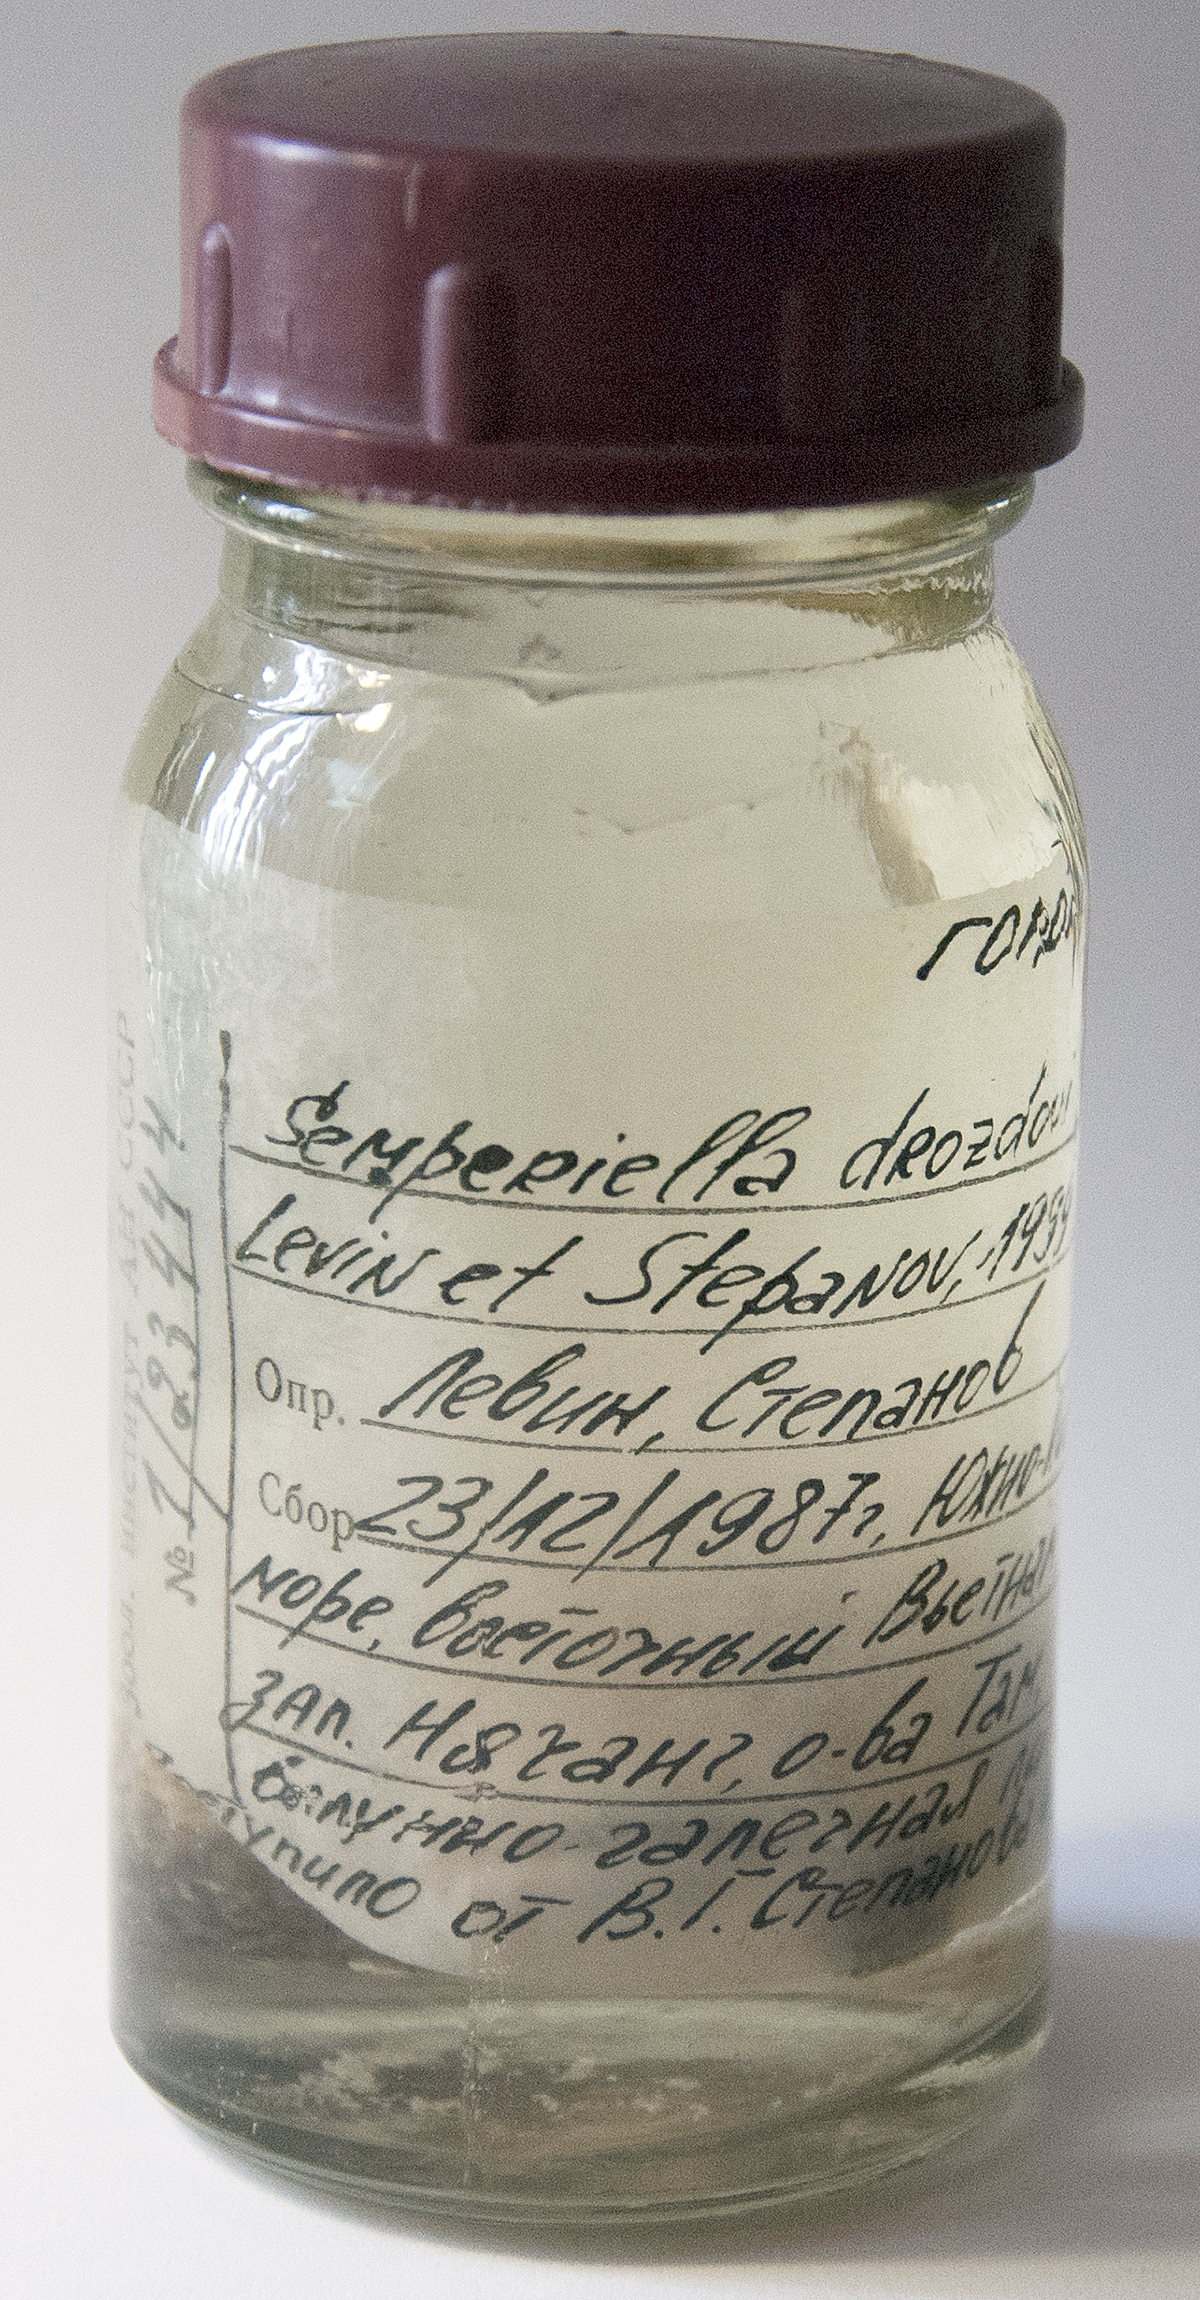 Semperiella drozdovi
Levin et Stepanov, 199
Опр. Левин, Степанов
Сбор 23/12/1987г, Южно-К
море, восточный Вьетнам
зап. Нячанг, о-ва Там
валунно-галечная
поступило от В.Г. Степанова
Зоол. институт АН СССР
№ 1/23444